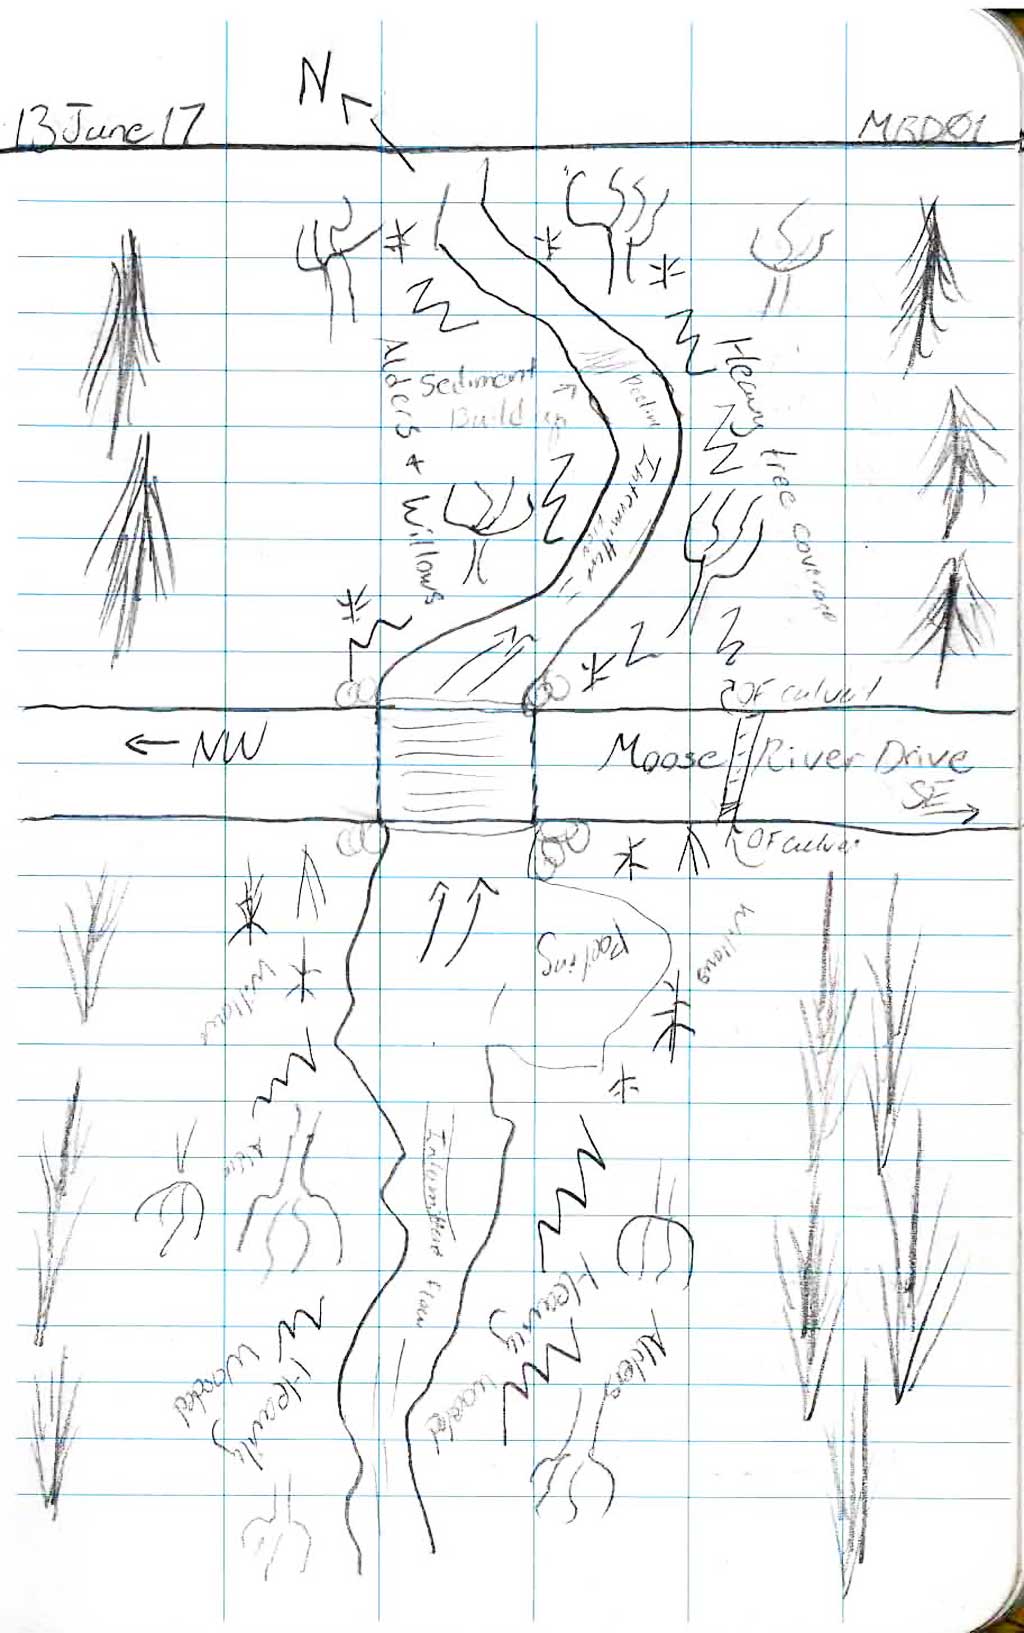 N
13 June 17
MRD01
Alders & Willows
Sediment
Build up
Pooling
Intermittent
flow
Heavy tree coverage
OF culvert
← NW
Moose River Drive
SE
OF culver
Willows
Pooling
Willows
Alder
Intermittent Flow
Heavily
wooded
Heavily
wooded
Alders